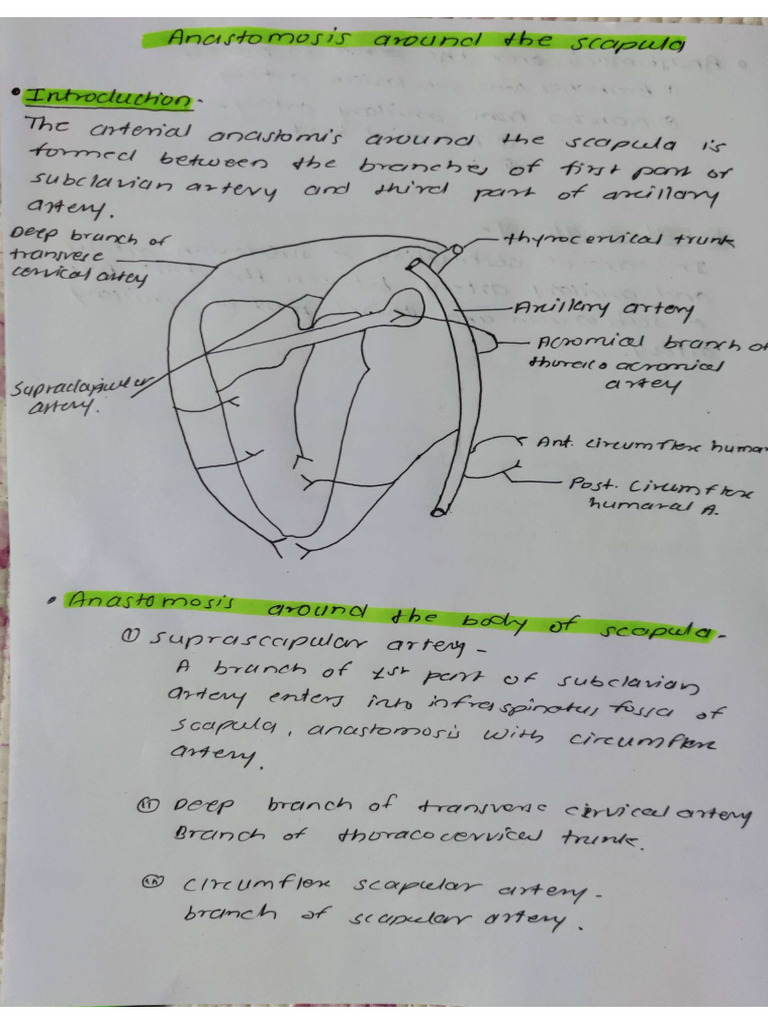 Anastomosis around the scapula
• Introduction -
The arterial anastomis around the scapula is
formed between the branches of first part of
subclavian artery and third part of axillary
artery.
Deep branch of
transverce
cervical artey
thyrocervical trunk
Axillary artery
Acromical branch of
thoraco acromical
artey
artery.
Ant. circumflex humar
Post. circumflex
humaral A.
• Anastomosis around the body of scapula -
(i) suprascapular artery -
A branch of 1st part of subclavian
artery enters into infraspinatus fossa of
scapula, anastomosis with circumflex
artery.
(ii) Deep branch of transverse cervical artery
Branch of thoracocervical trunk.
(iii) circumflex scapular artery -
branch of scapular artery.